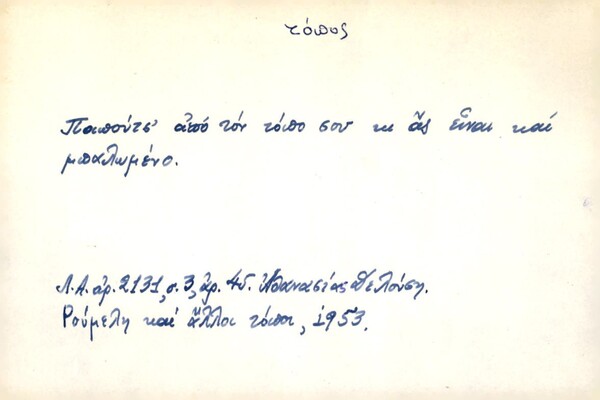 τόπος
Παπούτσ' ἀπό τόν τόπο σου κι ἄς εἶναι καί
μπαλωμένο.
Λ.Α. ἀρ. 2131, σ. 3, ἀρ. 45. Ἀθανασίας
Ρούμελη καί ἄλλοι τόποι, 1953.